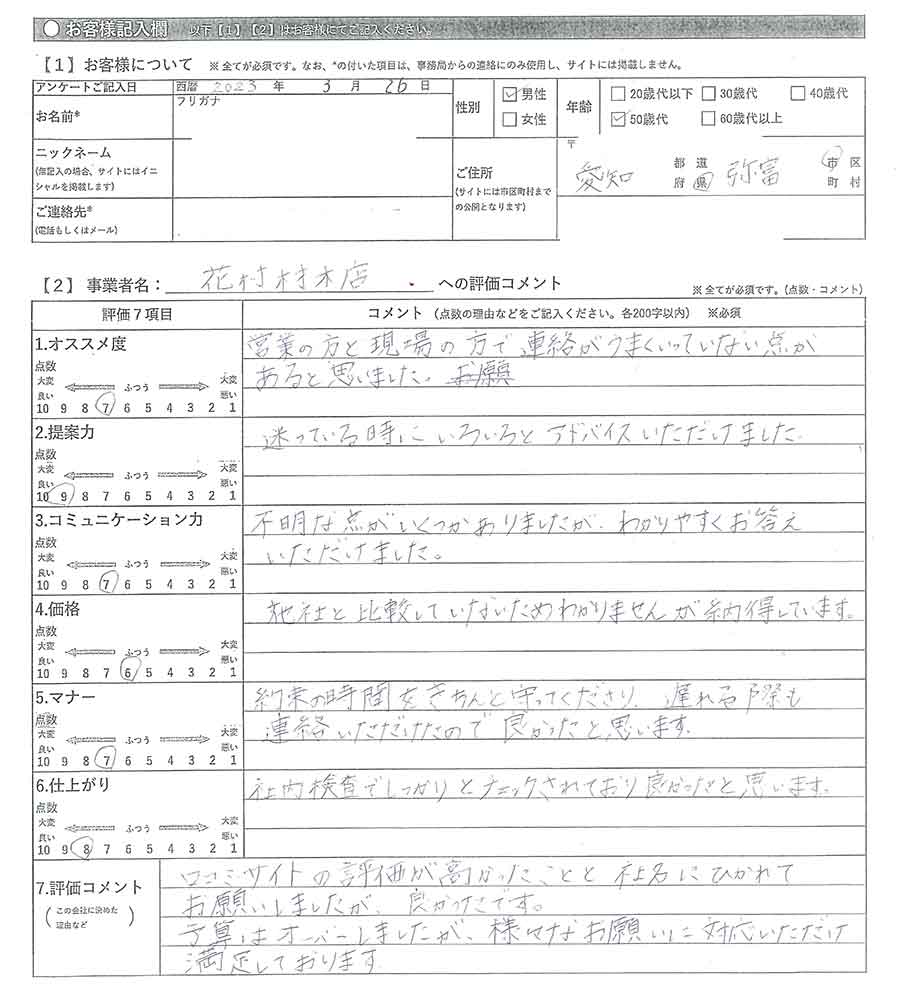 ● お客様記入欄 以下【1】【2】はお客様にてご記入ください。
【1】お客様について ※全てが必須です。なお、*の付いた項目は、事務局からの連絡にのみ使用し、サイトには掲載しません。
アンケートご記入日 西暦 2023 年 3 月 26 日
お名前* フリガナ
性別 ☑男性 □女性
年齢 □20歳代以下 □30歳代 □40歳代
☑50歳代 □60歳代以上
ニックネーム
(無記入の場合、サイトにはイニ
シャルを掲載します)
ご連絡先*
(電話もしくはメール)
ご住所
(サイトには市区町村まで
の公開となります)
〒
愛知 都道府県 弥富 市区町村
【2】事業者名: 花村材木店 への評価コメント ※全てが必須です。(点数・コメント)
評価7項目 コメント (点数の理由などをご記入ください。各200字以内) ※必須
1.オススメ度
点数
大変良い ふつう 大変悪い
10 9 8 7 6 5 4 3 2 1
営業の方と現場の方で連絡がうまくいっていない点が
あると思いました。お願
2.提案力
点数
大変良い ふつう 大変悪い
10 9 8 7 6 5 4 3 2 1
迷っている時にいろいろとアドバイスいただけました。
3.コミュニケーション力
点数
大変良い ふつう 大変悪い
10 9 8 7 6 5 4 3 2 1
不明な点がいくつかありましたが、わかりやすくお答え
いただけました。
4.価格
点数
大変良い ふつう 大変悪い
10 9 8 7 6 5 4 3 2 1
他社と比較していないためわかりませんが納得しています。
5.マナー
点数
大変良い ふつう 大変悪い
10 9 8 7 6 5 4 3 2 1
約束の時間をきちんと守ってくださり、遅れる際も
連絡いただけたので良かったと思います。
6.仕上がり
点数
大変良い ふつう 大変悪い
10 9 8 7 6 5 4 3 2 1
社内検査でしっかりとチェックされており良かったと思います。
7.評価コメント
(この会社に決めた
理由など)
口コミサイトの評価が高かったことと社名にひかれて
お願いしましたが、良かったです。
予算はオーバーしましたが、様々なお願いに対応いただけ
満足しております。